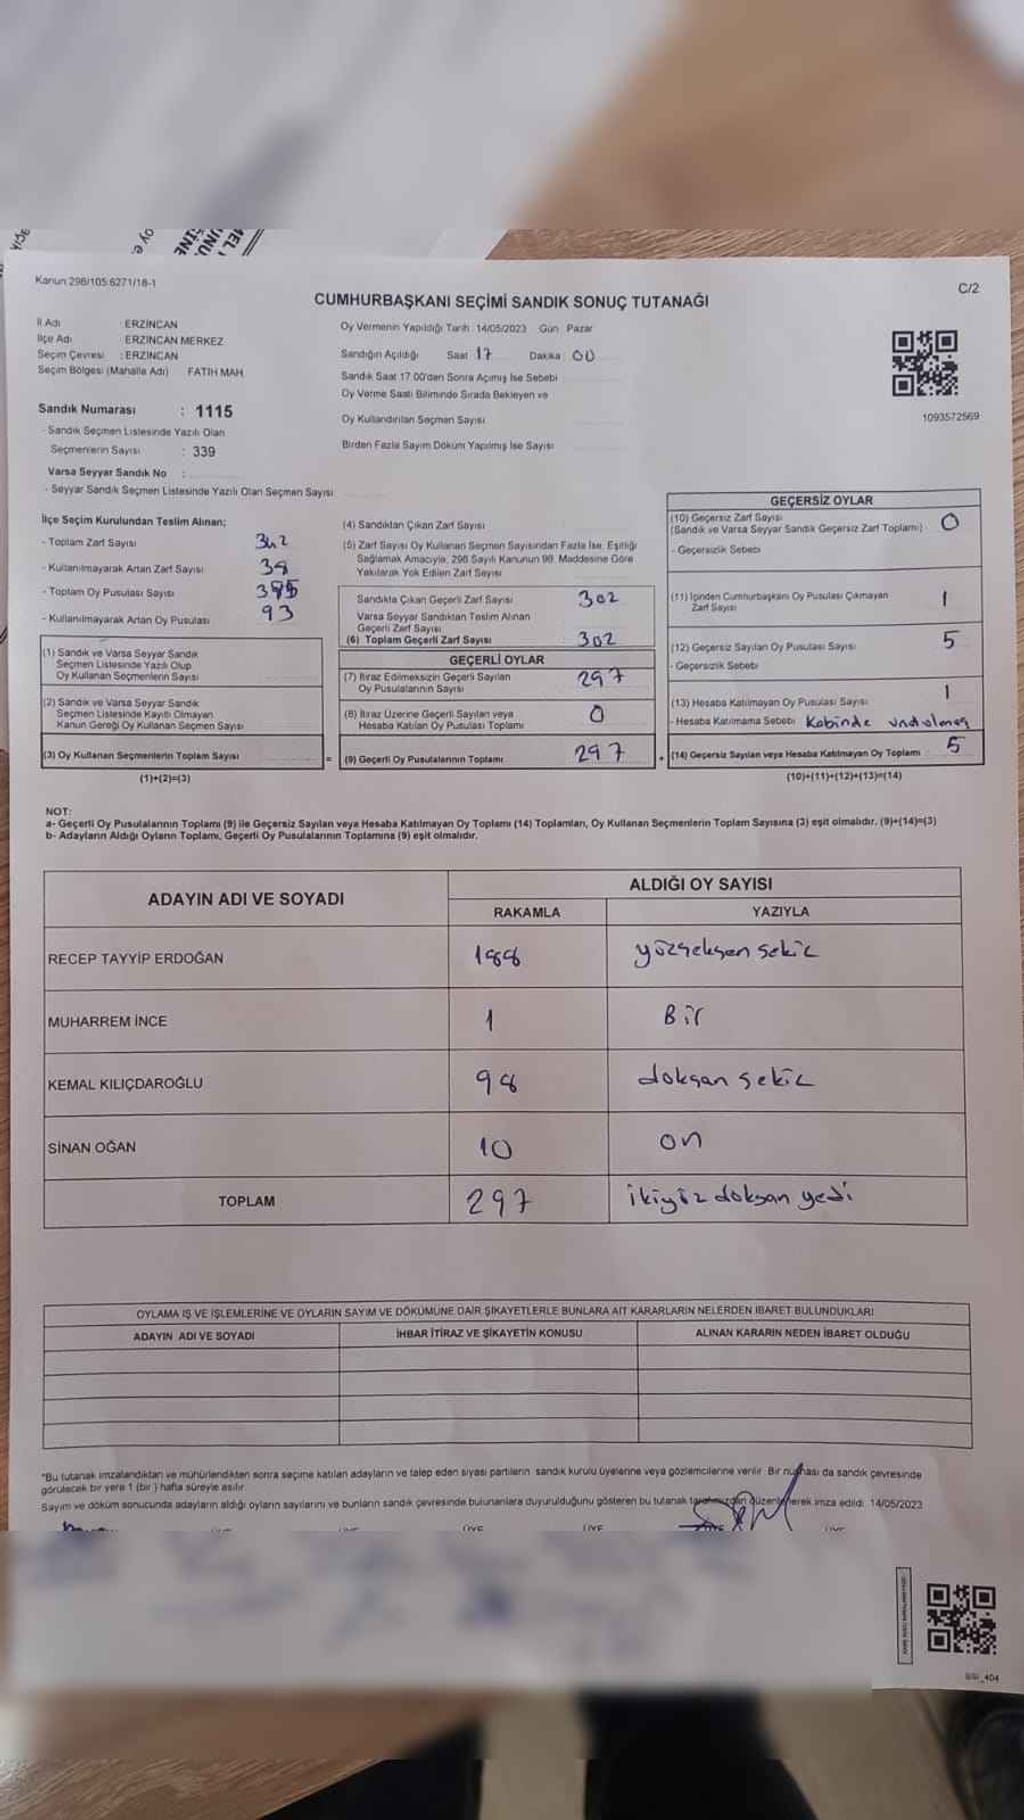 Kanun 298/105:6271/18-1
C/2
CUMHURBAŞKANI SEÇİMİ SANDIK SONUÇ TUTANAĞI
İl Adı : ERZİNCAN
İlçe Adı : ERZİNCAN MERKEZ
Seçim Çevresi : ERZİNCAN
Seçim Bölgesi (Mahalle Adı) FATİH MAH.
Sandık Numarası : 1115
- Sandık Seçmen Listesinde Yazılı Olan
Seçmenlerin Sayısı : 339
Varsa Seyyar Sandık No :
- Seyyar Sandık Seçmen Listesinde Yazılı Olan Seçmen Sayısı
Oy Vermenin Yapıldığı Tarih: 14/05/2023 Gün: Pazar
Sandığın Açıldığı Saat 17 Dakika 00
Sandık Saat 17.00'den Sonra Açımış İse Sebebi
Oy Verme Saati Bitiminde Sırada Bekleyen ve
Oy Kullandırılan Seçmen Sayısı
Birden Fazla Sayım Döküm Yapılmış İse Sayısı
1093572569
İlçe Seçim Kurulundan Teslim Alınan;
- Toplam Zarf Sayısı 342
- Kullanılmayarak Artan Zarf Sayısı
- Toplam Oy Pusulası Sayısı
- Kullanılmayarak Artan Oy Pusulası 93
(1) Sandık ve Varsa Seyyar Sandık
Seçmen Listesinde Yazılı Olup
Oy Kullanan Seçmenlerin Sayısı
(2) Sandık ve Varsa Seyyar Sandık
Seçmen Listesinde Kayıtlı Olmayan
Kanun Gereği Oy Kullanan Seçmen Sayısı
(3) Oy Kullanan Seçmenlerin Toplam Sayısı =
(1)+(2)=(3)
(4) Sandıktan Çıkan Zarf Sayısı
(5) Zarf Sayısı Oy Kullanan Seçmen Sayısından Fazla İse, Eşitliği
Sağlamak Amacıyla, 298 Sayılı Kanunun 98. Maddesine Göre
Yakılarak Yok Edilen Zarf Sayısı
Sandıkta Çıkan Geçerli Zarf Sayısı 302
Varsa Seyyar Sandıktan Teslim Alınan
Geçerli Zarf Sayısı
(6) Toplam Geçerli Zarf Sayısı 302
GEÇERLİ OYLAR
(7) İtiraz Edilmeksizin Geçerli Sayılan
Oy Pusulalarının Sayısı 297
(8) İtiraz Üzerine Geçerli Sayılan veya
Hesaba Katılan Oy Pusulası Toplamı 0
(9) Geçerli Oy Pusulalarının Toplamı 297 +
GEÇERSİZ OYLAR
(10) Geçersiz Zarf Sayısı
(Sandık ve Varsa Seyyar Sandık Geçersiz Zarf Toplamı) 0
- Geçersizlik Sebebi
(11) İçinden Cumhurbaşkanı Oy Pusulası Çıkmayan
Zarf Sayısı 1
(12) Geçersiz Sayılan Oy Pusulası Sayısı 5
- Geçersizlik Sebebi
(13) Hesaba Katılmayan Oy Pusulası Sayısı 1
- Hesaba Katılmama Sebebi Kabinde
(14) Geçersiz Sayılan veya Hesaba Katılmayan Oy Toplamı 5
(10)+(11)+(12)+(13)=(14)
NOT:
a- Geçerli Oy Pusulalarının Toplamı (9) ile Geçersiz Sayılan veya Hesaba Katılmayan Oy Toplamı (14) Toplamları, Oy Kullanan Seçmenlerin Toplam Sayısına (3) eşit olmalıdır. (9)+(14)=(3)
b- Adayların Aldığı Oyların Toplamı, Geçerli Oy Pusulalarının Toplamına (9) eşit olmalıdır.
ADAYIN ADI VE SOYADI
ALDIĞI OY SAYISI
RAKAMLA YAZIYLA
RECEP TAYYİP ERDOĞAN 188 yüzseksen sekiz
MUHARREM İNCE 1 Bir
KEMAL KILIÇDAROĞLU 98 doksan sekiz
SİNAN OĞAN 10 on
TOPLAM 297 ikiyüz doksan yedi
OYLAMA İŞ VE İŞLEMLERİNE VE OYLARIN SAYIM VE DÖKÜMÜNE DAİR ŞİKAYETLERLE BUNLARA AİT KARARLARIN NELERDEN İBARET BULUNDUKLARI
ADAYIN ADI VE SOYADI İHBAR İTİRAZ VE ŞİKAYETİN KONUSU ALINAN KARARIN NEDEN İBARET OLDUĞU
*Bu tutanak imzalandıktan ve mühürlendikten sonra seçime katılan adayların ve talep eden siyasi partilerin sandık kurulu üyelerine veya gözlemcilerine verilir. Bir nüshası da sandık çevresinde
görülecek bir yere 1 (bir) hafta süreyle asılır.
Sayım ve döküm sonucunda adayların aldığı oyların sayılarını ve bunların sandık çevresinde bulunanlara duyurulduğunu gösteren bu tutanak tarafımızdan düzenlenerek imza edildi. 14/05/2023